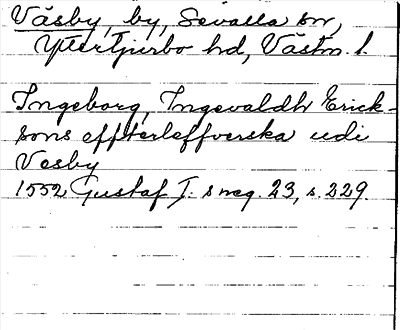 Väsby, by, Sevalla sn,
Yttertjurbo hd, Västm. l.
Ingeborg, Ingevaldh Erick-
sons effterleffverska udi
Vesby
1552 Gustaf I:s reg. 23, s. 229.